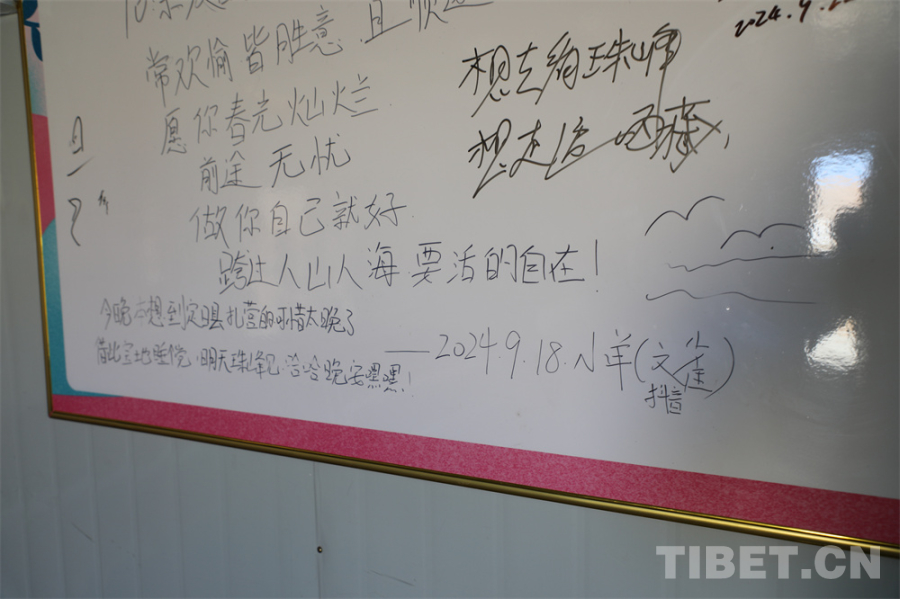 常欢愉皆胜意 且顺遂
愿你春光灿烂
前途无忧
做你自己就好
跨过人山人海 要活的自在!
今晚本想到定日县扎营的可惜太晚了
借此宝地睡觉,明天珠峰见,哈哈晚安嘿嘿!
——2024.9.18.小羊(文
抖音
2024.9.22
想去珠峰
想走 西藏,
且
TIBET.CN